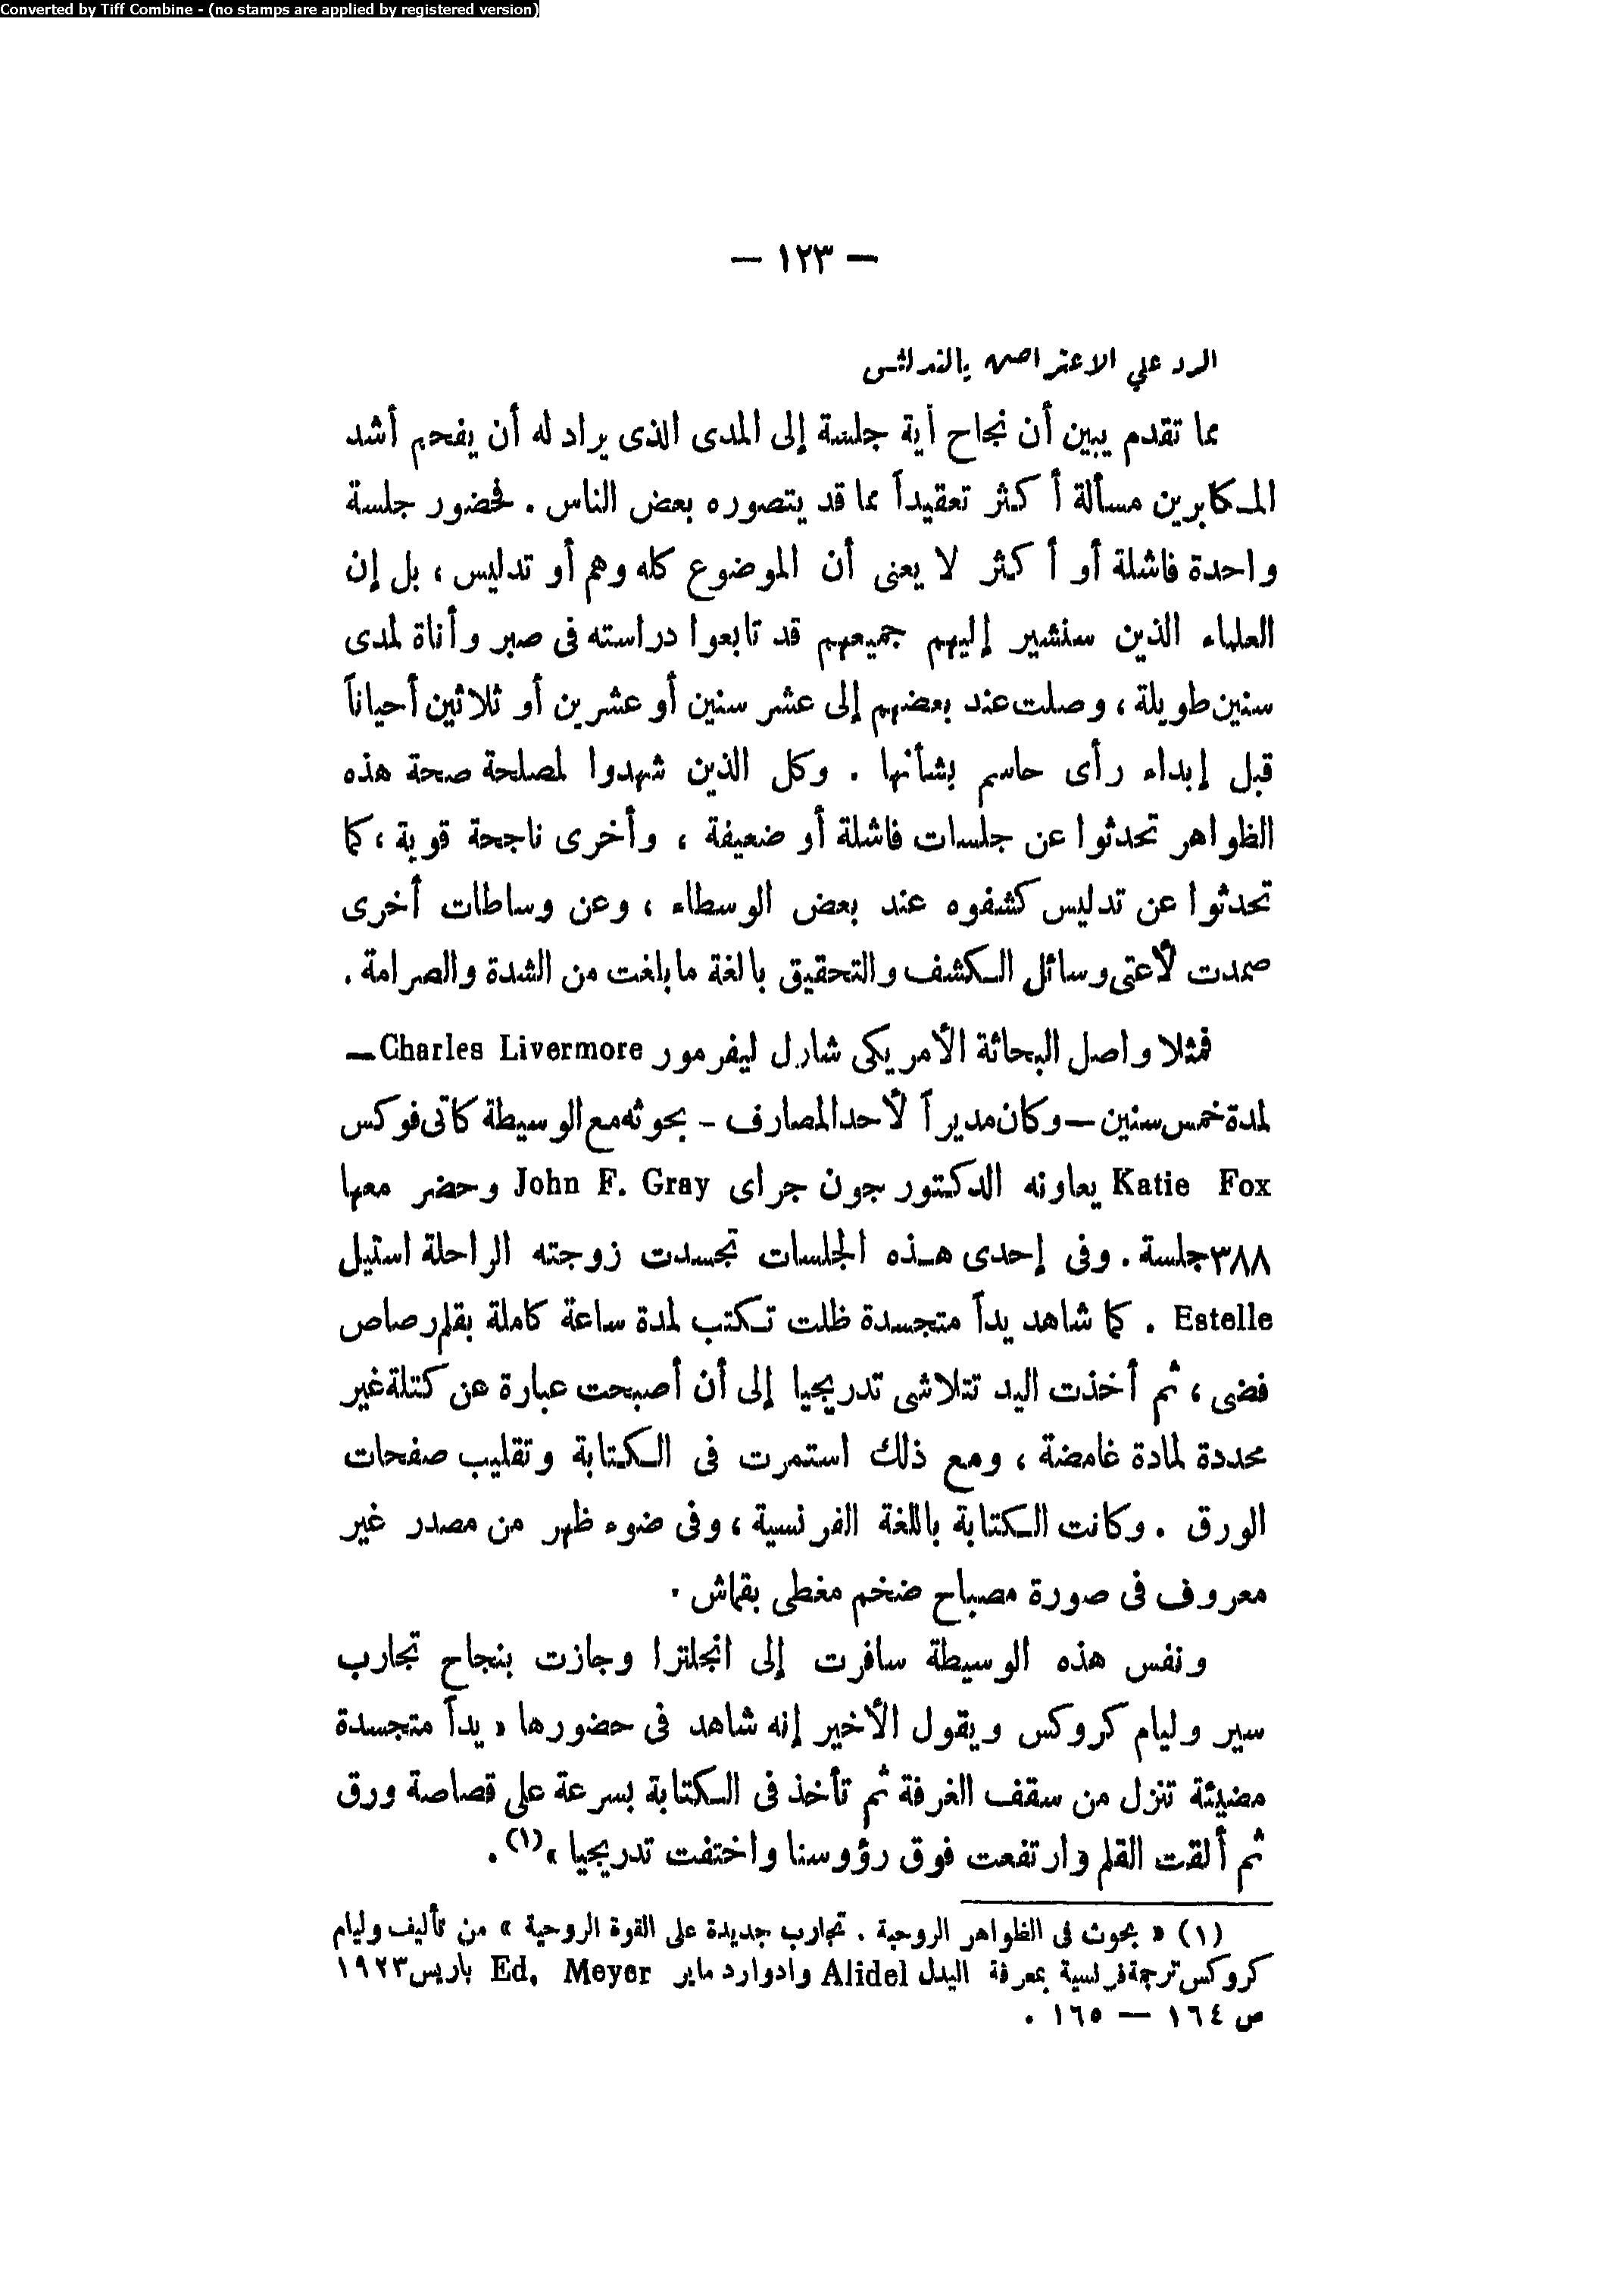 Converted by Tiff Combine - (no stamps are applied by registered version)
— ١٢٣ —
الرد على الاعتراض بالتدليس
مما تقدم يبين أن نجاح أية جلسة إلى المدى الذى يراد له أن يفحم أشد
المكابرين مسألة أكثر تعقيداً مما قد يتصوره بعض الناس . فحضور جلسة
واحدة فاشلة أو أكثر لا يعنى أن الموضوع كله وهم أو تدليس ، بل إن
العلماء الذين سنشير إليهم جميعهم قد تابعوا دراسته فى صبر وأناة لمدى
سنين طويلة ، وصلت عند بعضهم إلى عشر سنين أو عشرين أو ثلاثين أحياناً
قبل إبداء رأى حاسم بشأنها . وكل الذين شهدوا لمصلحة صحة هذه
الظواهر تحدثوا عن جلسات فاشلة أو ضعيفة ، وأخرى ناجحة قوية ، كما
تحدثوا عن تدليس كشفوه عند بعض الوسطاء ، وعن وساطات أخرى
صمدت لأعتى وسائل الكشف والتحقيق بالغة ما بلغت من الشدة والصرامة .
فمثلا واصل البحاثة الأمريكى شارل ليفرمور Charles Livermore —
لمدة خمس سنين — وكان مديراً لأحد المصارف - بحوثه مع الوسيطة كاتى فوكس
Katie Fox يعاونه الدكتور جون جراى John F. Gray وحضر معها
٣٨٨ جلسة . وفى إحدى هذه الجلسات تجسدت زوجته الراحلة استيل
Estelle . كما شاهد يداً متجسدة ظلت تكتب لمدة ساعة كاملة بقلم رصاص
فضى ، ثم أخذت اليد تتلاشى تدريجيا إلى أن أصبحت عبارة عن كتلة غير
محددة لمادة غامضة ، ومع ذلك استمرت فى الكتابة وتقليب صفحات
الورق . وكانت الكتابة باللغة الفرنسية ، وفى ضوء ظهر من مصدر غير
معروف فى صورة مصباح ضخم مغطى بقماش .
ونفس هذه الوسيطة سافرت إلى انجلترا وجازت بنجاح تجارب
سير وليام كروكس ويقول الأخير إنه شاهد فى حضورها « يداً متجسدة
مضيئة تنزل من سقف الغرفة ثم تأخذ فى الكتابة بسرعة على قصاصة ورق
ثم ألقت القلم وارتفعت فوق رؤوسنا واختفت تدريجيا »(١) .
(١) « بحوث فى الظواهر الروحية . تجارب جديدة على القوة الروحية » من تأليف وليام
كروكس ترجمة فرنسية بمعرفة اليدل Alidel وادوارد ماير Ed. Meyer باريس ١٩٢٣
ص ١٦٤ — ١٦٥ .